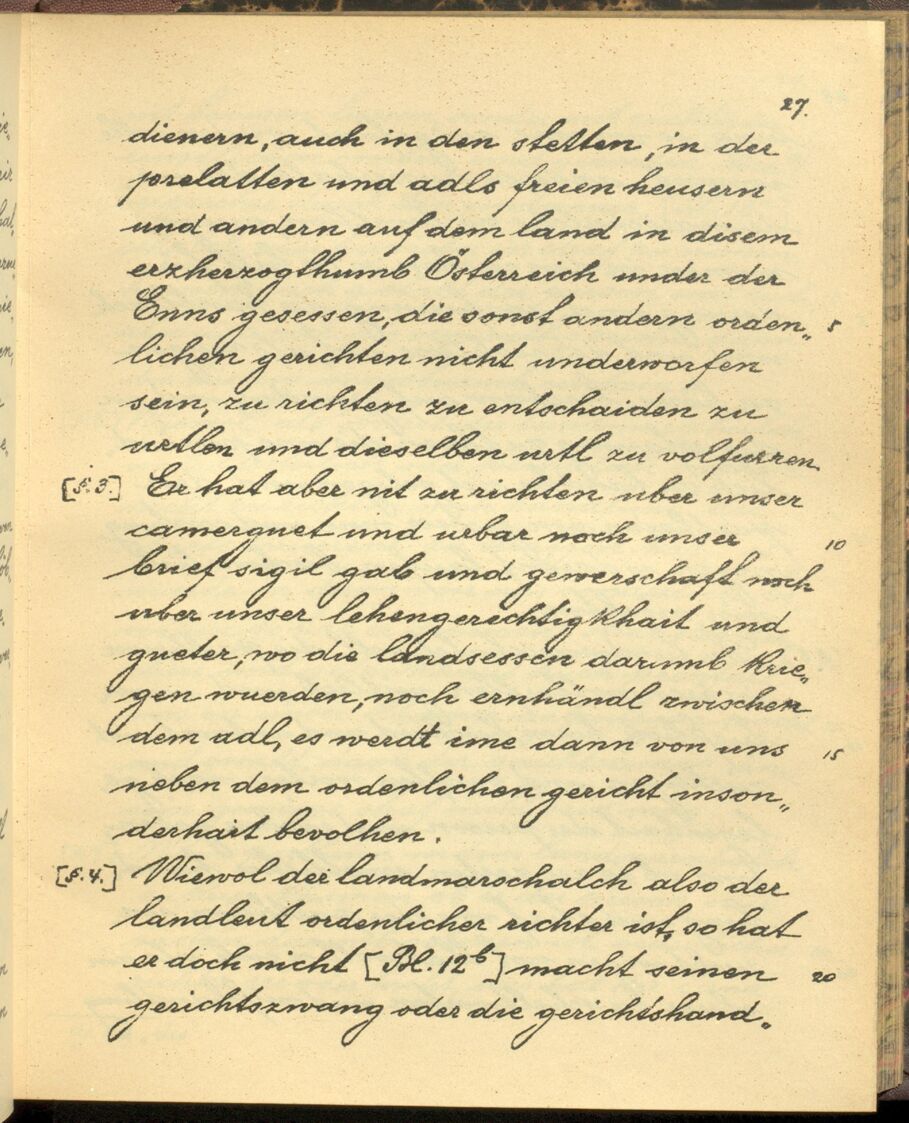 27.
dienern, auch in den stetten, in der
prelatten und adls freien heusern
und andern auf dem land in disem
erzherzogthumb Österreich under der
Enns gesessen, die sonst andern orden„ 5
lichen gerichten nicht underworfen
sein, zu richten zu entschaiden zu
urtlen und dieselben urtl zu volfurren.
[§. 3.] Er hat aber nit zu richten uber unser
camerguet und urbar noch unser 10
brief sigil gab und gewerschaft noch
uber unser lehengerechtigkhait und
gueter, wo die landsessen darumb krie„
gen wuerden, noch ernhändl zwischen
dem adl, es werdt ime dann von uns 15
neben dem ordenlichen gericht inson„
derhait bevolhen.
[§. 4.] Wiewol der landmarschalch also der
landleut ordenlicher richter ist, so hat
er doch nicht [Bl. 12b] macht seinen 20
gerichtszwang oder die gerichtshand„